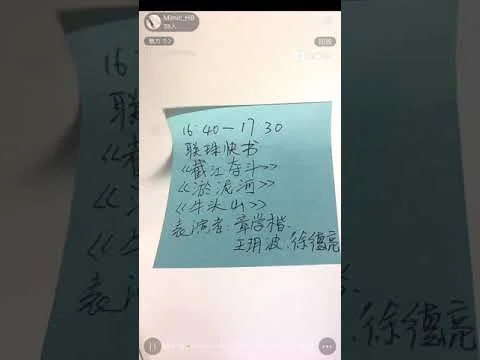 16:40—17 30
联珠快书
《截江夺斗》
《淤泥河》
《牛头山》
表演者:章学楷.
王玥波.徐德亮